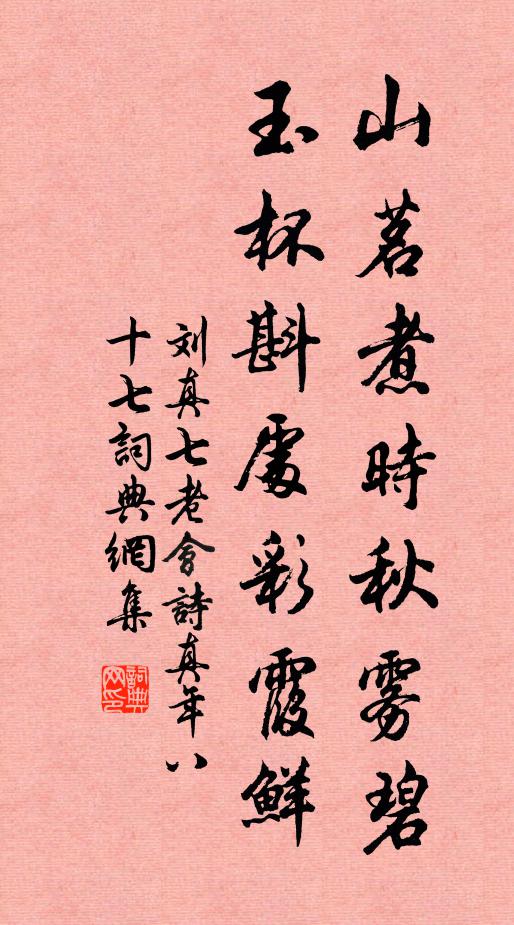 山茗煮時秋雾碧
玉杯斟處彩霞鮮
刘真七老會詩真年八
十七詞典網集
詞典
网印